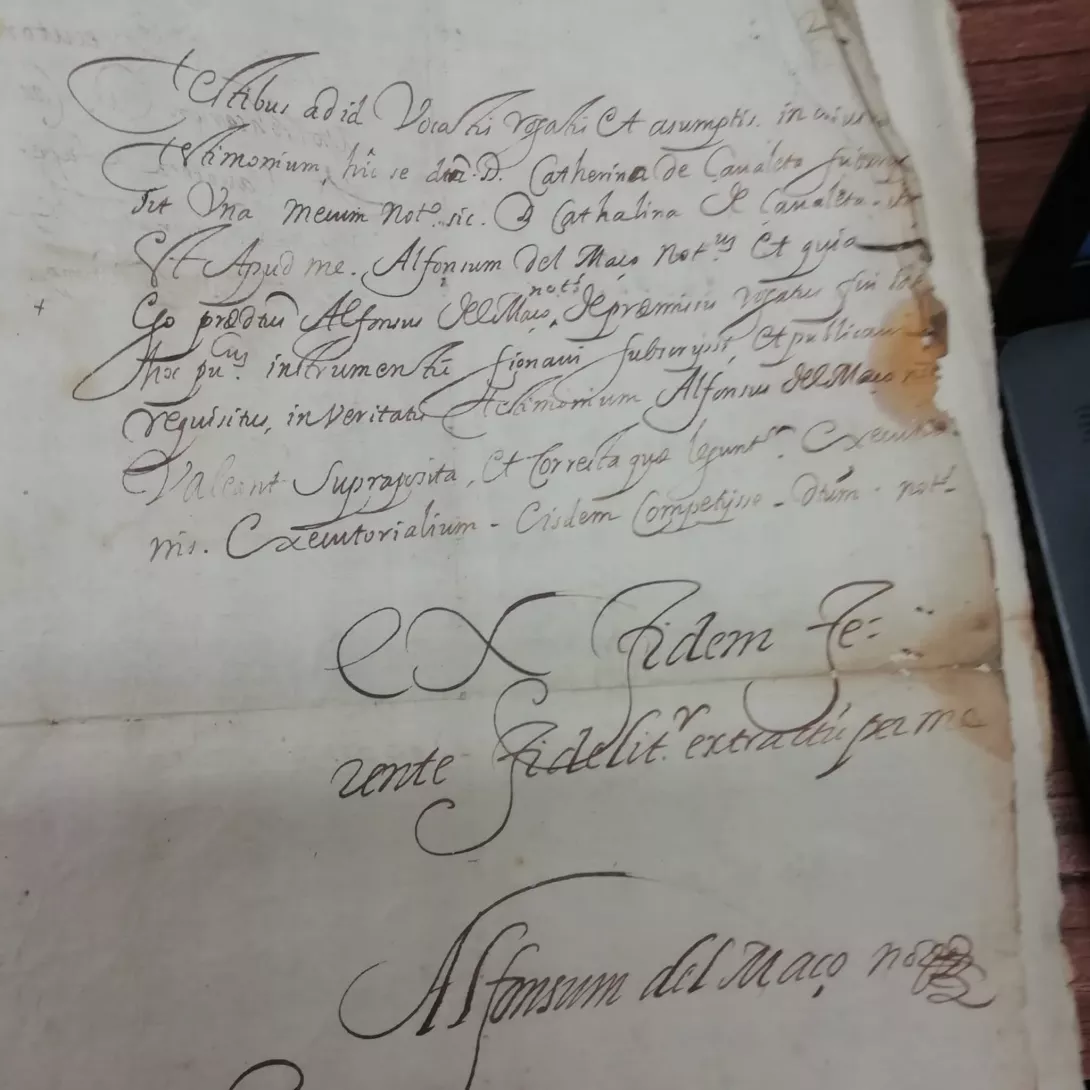 Testibus ad id Vocatis rogatis Et asumptis. in cuius
Testimonium, hic se dta. D. Catherina de Caualeta subscrip
sit Vna mecum Notº. sic. D Cathalina de Caualeta.
Et Apud me. Alfonsum Del Maço Not.us Et quia
+ Ego prædtus Alfonsus del Maço nots. de præmissis rogatus fui Ideo
Hoc pu.cum instrumentũ signaui subscripsi, et publicaui
requisitus, in Veritatis testimonium Alfonsus del Maço nots
Valeant Supraposita, et Correcta quæ legunt.r Executo
nis. Executorialium - Eisdem Competijsse - Dtum - nots
EX Fidem Fe=
rente Fidelit.r extractũ per me
Alfonsum del Maço